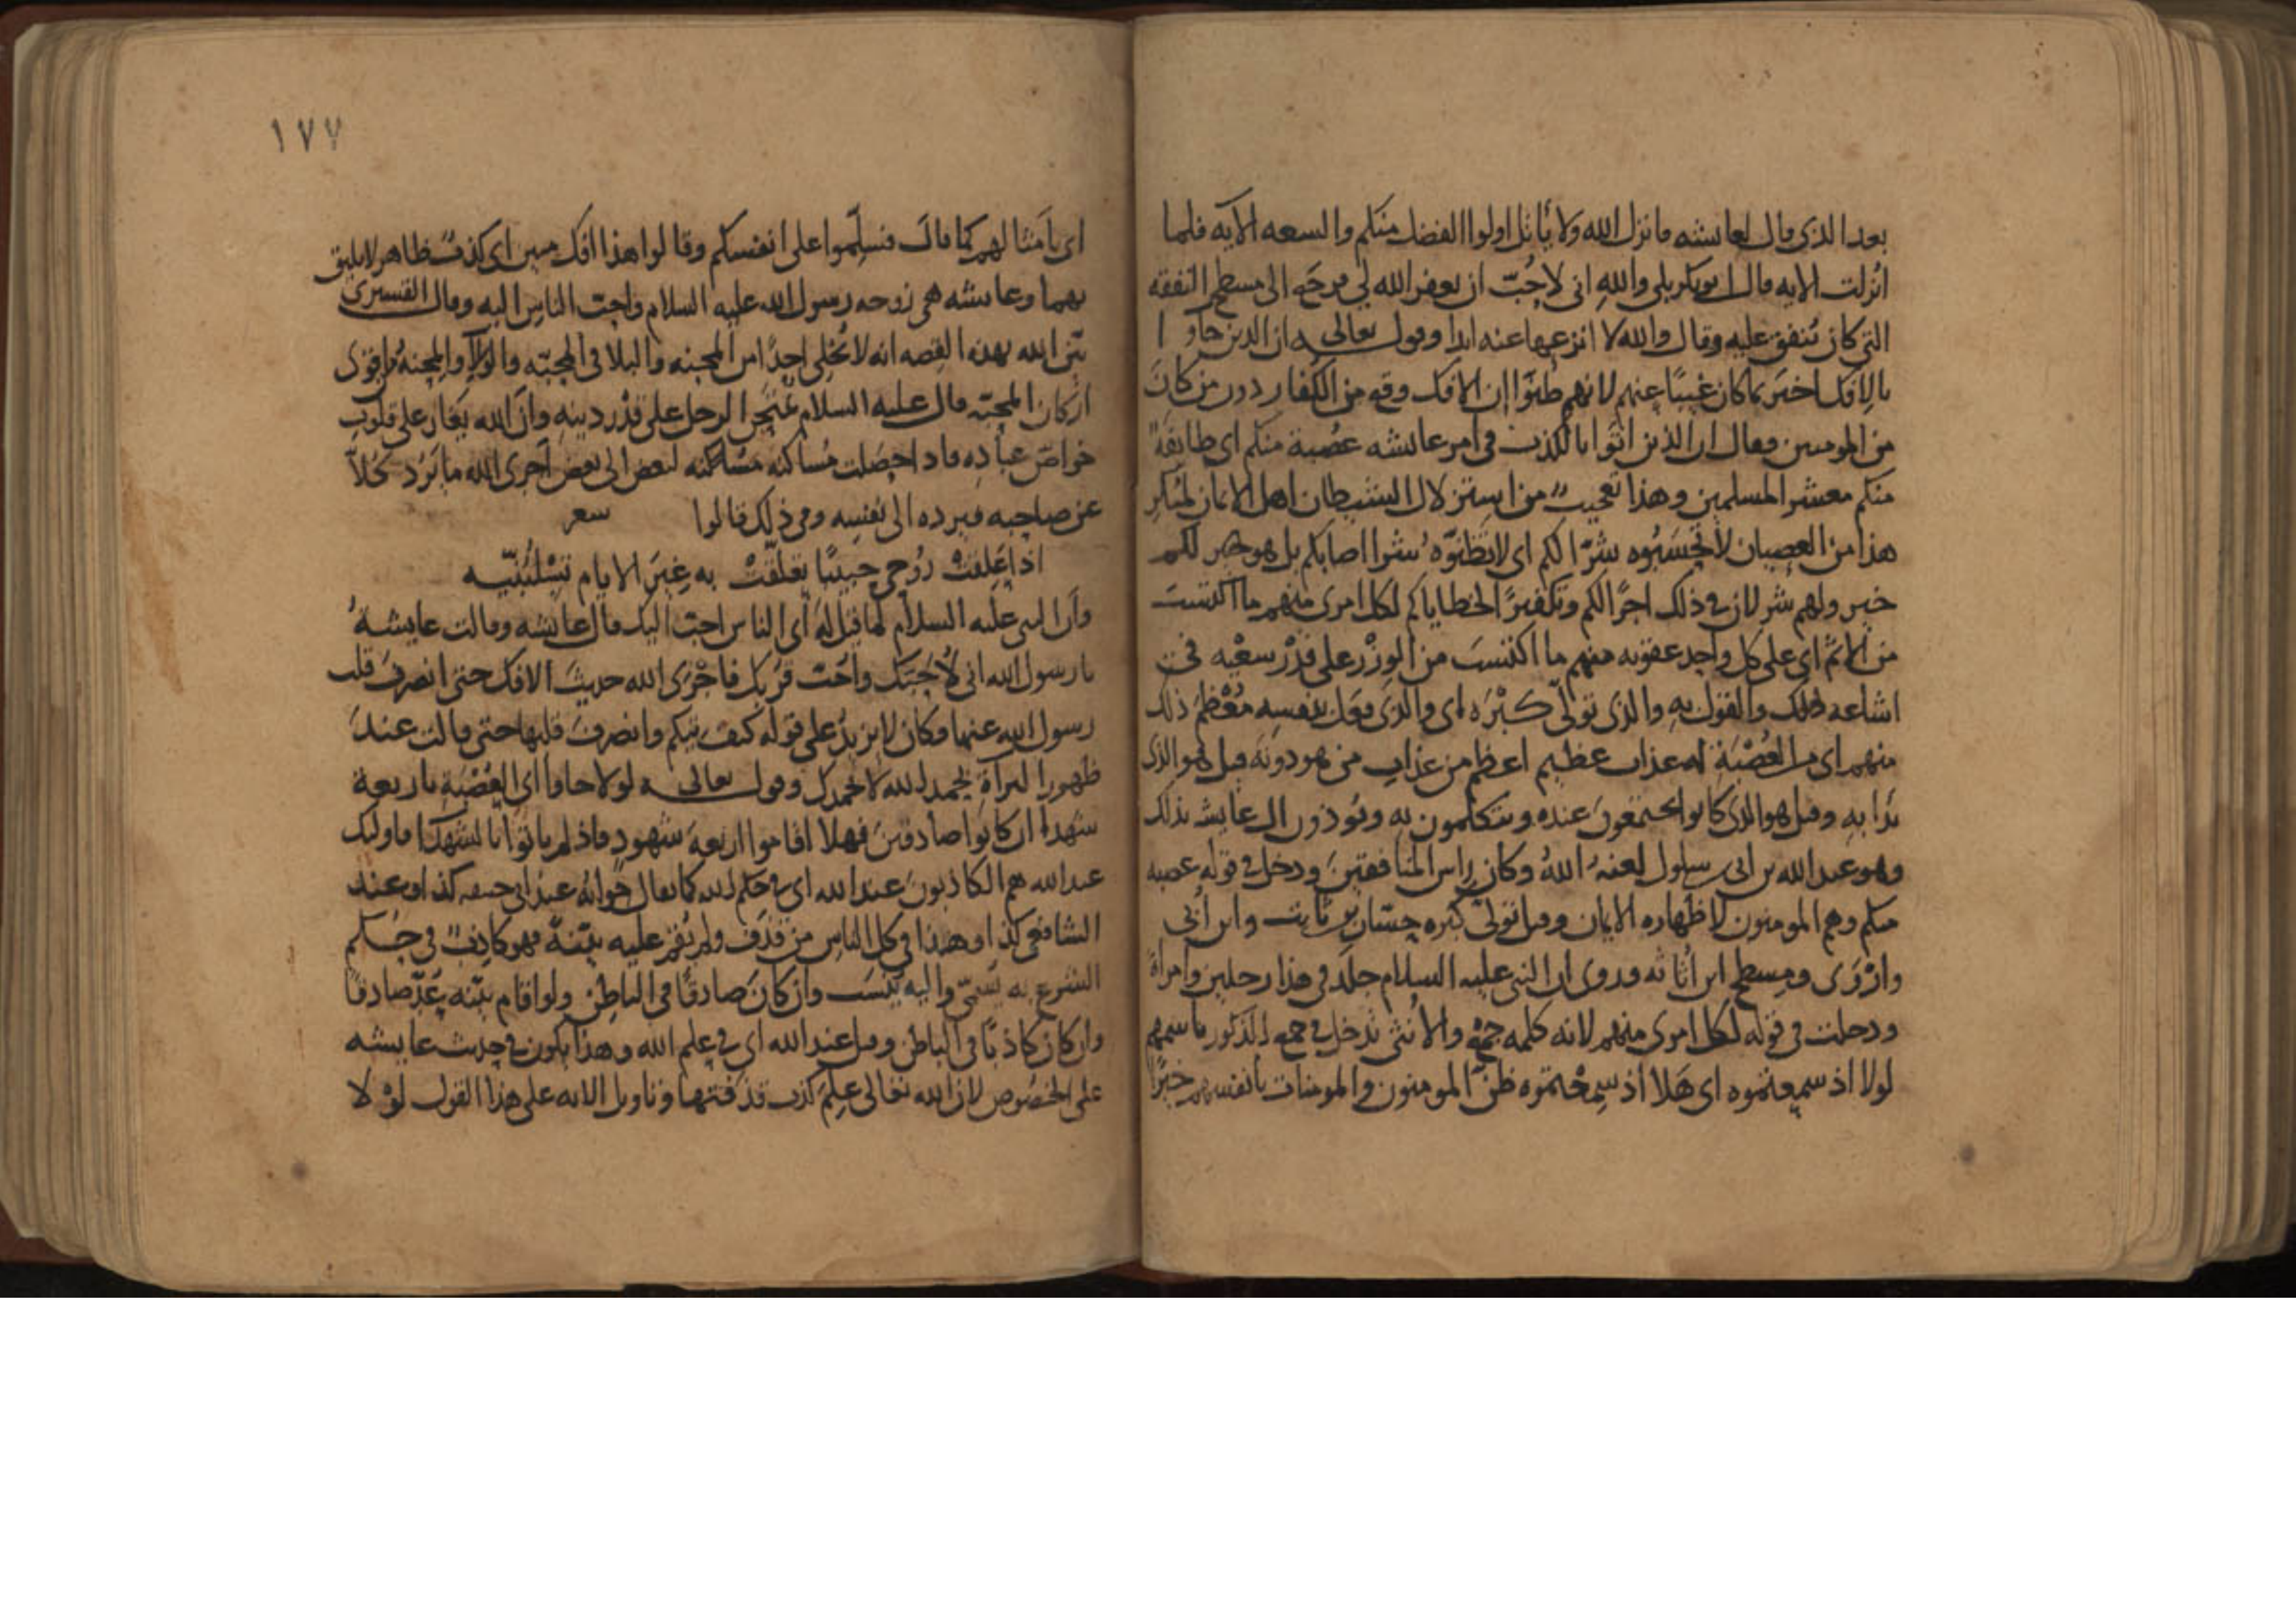 بعد الذي قال لعايشه فانزل الله ولا يأتل اولوا الفضل منكم والسعه الآيه فلما
انزلت الايه قال ابو بكر بلى والله اني لاحب ان يغفر الله لي فرجع الى مسطح النفقه
التي كان ينفق عليه وقال والله لا انزعها عنه ابدا وقوله تعالى ان الذين جاوا
بالافك اخبر بما كان غيبا عنهم لانهم ظنوا ان الافك وقع من الكفار دون من كان
من المومنين فقال ان الذين اتوا بالكذب في امر عايشه عصبة منكم اي طايفة
منكم معشر المسلمين وهذا تعجيب من استزلال الشيطان اهل الايمان لمثل
هذا من العصيان لا تحسبوه شرا لكم اي لا تظنوه شرا اصابكم بل هو خير لكم
خير ولهم شر لان في ذلك اجرا لكم وتكفيرا لخطاياكم لكل امرى منهم ما اكتسب
من الاثم اي على كل واحد عقوبه منهم ما اكتسب من الوزر على قدر سعيه في
اشاعه ذلك والقول به والذي تولى كبره اي والذي فعل بنفسه معظم ذلك
منهم اي من العصبة له عذاب عظيم اعظم من عذاب من هو دونه قيل هو الذي
بدا به وقيل هو الذي كانوا يجتمعون عنده ويتكلمون به ويوذون ال عايشه بذلك
وهو عبد الله بن ابي سلول لعنه الله وكان راس المنافقين ودخل في قوله عصبه
منكم وهم المومنون لاظهاره الايمان وقيل تولى كبره حسان بن ثابت وابن أبي
وازوى ومسطح ابن اثاثه وروى ان النبي عليه السلام جلد في هذا رجلين وامراة
ودخلت في قوله لكل امرى منهم لانه كلمه جمع والانثى تدخل في جمع الذكور باسمهم
لولا اذ سمعتموه اي هلا اذ سمعتموه ظن المومنون والمومنات بانفسهم خيرا
١٧٧
اي بامثالهم كما قال فسلموا على انفسكم وقالوا هذا افك مبين اي كذب ظاهر لا يليق
بهما وعايشه هي زوجه رسول الله عليه السلام واحب الناس اليه وقال القشيري
بين الله بهذه القصه انه لا يخلي احدا من المحنه والبلا في المحبه والولا والمحنة اقوى
اركان المحبه قال عليه السلام يمتحن الرجل على قدر دينه وان الله يغار على قلوب
خواص عباده فاذا حصلت مساكنه بعض الى بعض اجرى الله ما يرد كلا
عن صاحبه فيرده الى نفسه وفي ذلك قالوا شعر
اذا علقت روحي حبيبا تعلقت به غير الايام تسلبنيه
وان النبي عليه السلام لما قيل له اي الناس احب اليك قال عايشه وقالت عايشة
يا رسول الله اني لاحبك واحب قربك فاجرى الله حديث الافك حتى انصرف قلب
رسول الله عنها وكان لا يزيد على قوله كيف تيكم وانصرف قلبها حتى قالت عند
ظهور البراة بحمد الله لا بحمدك وقوله تعالى لولا جاوا اي العصبة باربعة
شهدا ان كانوا صادقين فهلا اقاموا اربعة شهود فاذ لم ياتوا بالشهدا فاوليك
عند الله هم الكاذبون عند الله اي في حكم الله كما يقال جوابه عند ابي حنيفه كذا وعند
الشافعي كذا وهذا في كل الناس من قذف ولم يقم عليه بينة فهو كاذب في حكم
الشرع به يسمى واليه ينسب وان كان صادقا في الباطن ولو اقام بينه يعد صادقا
وان كان كاذبا في الباطن وقيل عند الله اي في علم الله وهذا يكون في حديث عايشه
على الخصوص لان الله تعالى علم كذب قذفتها وتاويل الايه على هذا القول لو لا